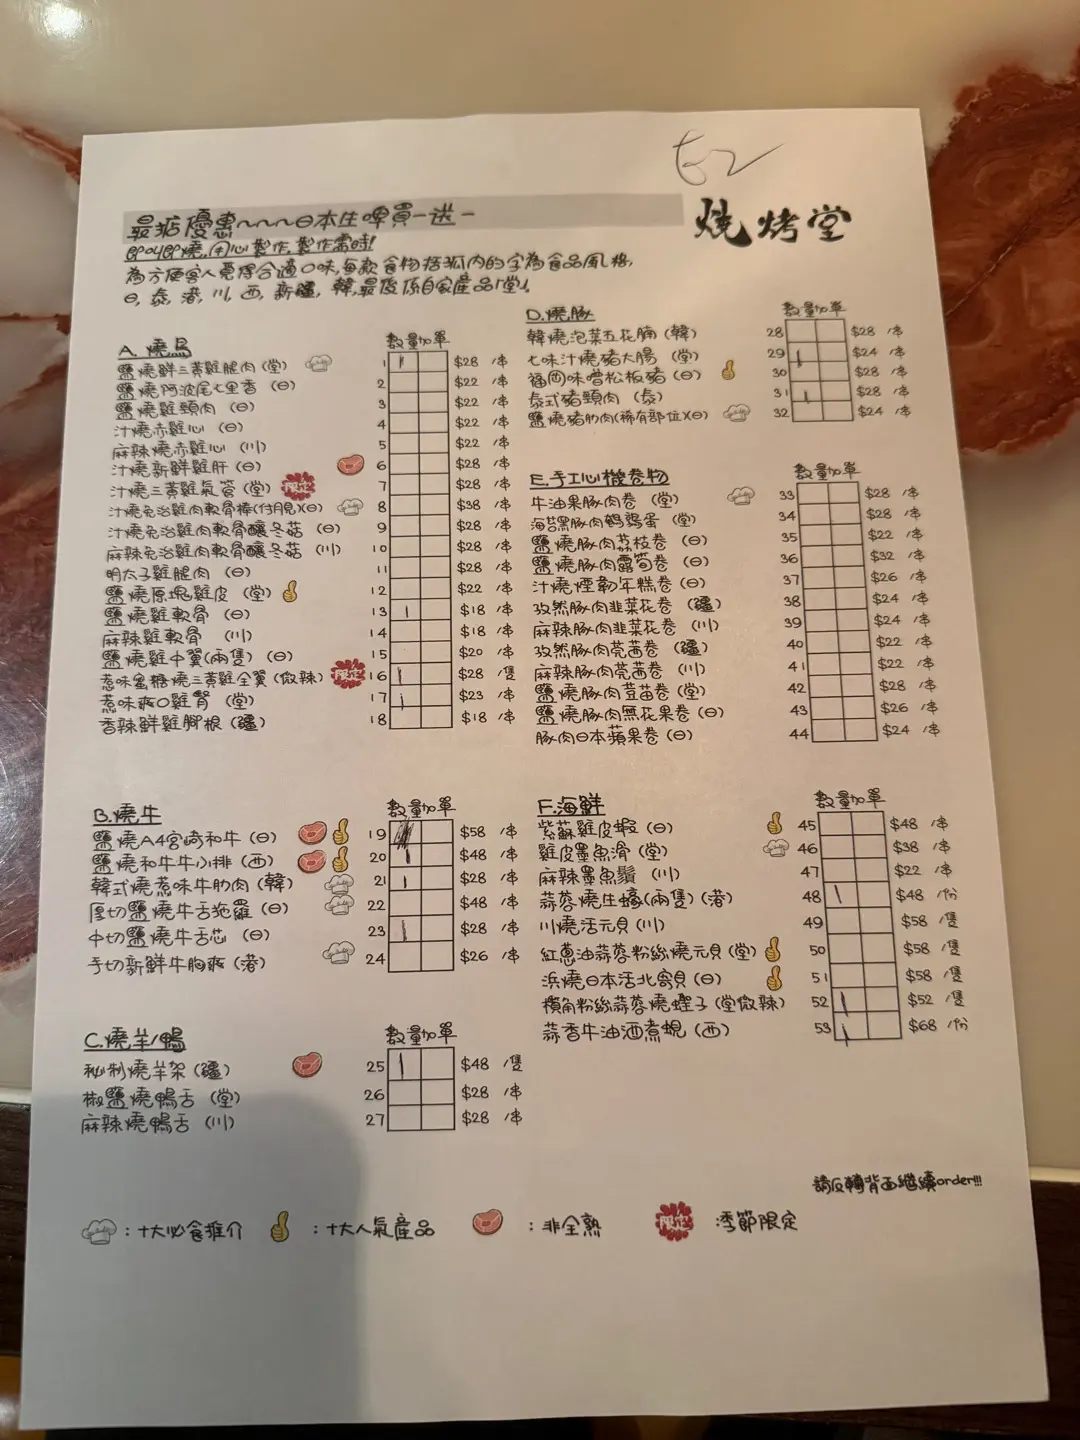 52
燒烤堂
最掂優惠~~~日本生啤買一送一
即叫即燒,用心製作,製作需時!
為方便客人覓得合適口味,每款食物括弧內的字為食品風格,
日,泰,港,川,西,新疆,韓,最後係自家產品「堂」
A.燒鳥 數量加單
鹽燒鮮三黃雞腿肉(堂) 1 $28 /串
鹽燒阿波尾七里香(日) 2 $22 /串
鹽燒雞頸肉(日) 3 $22 /串
汁燒赤雞心(日) 4 $22 /串
麻辣燒赤雞心(川) 5 $22 /串
汁燒新鮮雞肝(日) 6 $28 /串
汁燒三黃雞氣管(堂) 限定 7 $28 /串
汁燒免治雞肉軟骨棒(付月見)(日) 8 $38 /串
汁燒免治雞肉軟骨釀冬菇(日) 9 $28 /串
麻辣免治雞肉軟骨釀冬菇(川) 10 $28 /串
明太子雞腿肉(日) 11 $28 /串
鹽燒原塊雞皮(堂) 12 $22 /串
鹽燒雞軟骨(日) 13 $18 /串
麻辣雞軟骨(川) 14 $18 /串
鹽燒雞中翼(兩隻)(日) 15 $20 /串
惹味蜜糖燒三黃雞全翼(微辣) 限定 16 $28 /隻
惹味爽口雞腎(堂) 17 $23 /串
香辣鮮雞腳根(疆) 18 $18 /串
B.燒牛 數量加單
鹽燒A4宮崎和牛(日) 19 $58 /串
鹽燒和牛牛小排(西) 20 $48 /串
韓式燒惹味牛肋肉(韓) 21 $28 /串
厚切鹽燒牛舌拖羅(日) 22 $48 /串
中切鹽燒牛舌芯(日) 23 $28 /串
手切新鮮牛胸爽(港) 24 $26 /串
C.燒羊/鴨 數量加單
秘制燒羊架(疆) 25 $48 /隻
椒鹽燒鴨舌(堂) 26 $28 /串
麻辣燒鴨舌(川) 27 $28 /串
D.燒豚 數量加單
韓燒泡菜五花腩(韓) 28 $28 /串
七味汁燒豬大腸(堂) 29 $24 /串
福岡味噌松板豬(日) 30 $28 /串
泰式豬頸肉(泰) 31 $28 /串
鹽燒豬肋肉(稀有部位)(日) 32 $24 /串
E.手工心機卷物 數量加單
牛油果豚肉卷(堂) 33 $28 /串
海苔黑豚肉鵪鶉蛋(堂) 34 $28 /串
鹽燒豚肉荔枝卷(日) 35 $22 /串
鹽燒豚肉露筍卷(日) 36 $32 /串
汁燒煙韌年糕卷(日) 37 $26 /串
孜然豚肉韭菜花卷(疆) 38 $24 /串
麻辣豚肉韭菜花卷(川) 39 $24 /串
孜然豚肉莞茜卷(疆) 40 $22 /串
麻辣豚肉莞茜卷(川) 41 $22 /串
鹽燒豚肉萵苗卷(堂) 42 $28 /串
鹽燒豚肉無花果卷(日) 43 $26 /串
豚肉日本蘋果卷(日) 44 $24 /串
F.海鮮 數量加單
紫蘇雞皮蝦(日) 45 $48 /串
雞皮墨魚滑(堂) 46 $38 /串
麻辣墨魚鬚(川) 47 $22 /串
蒜蓉燒生蠔(兩隻)(港) 48 $48 /份
川燒活元貝(川) 49 $58 /隻
紅蔥油蒜蓉粉絲燒元貝(堂) 50 $58 /隻
浜燒日本活北寄貝(日) 51 $58 /隻
欖角粉絲蒜蓉燒蟶子(堂微辣) 52 $52 /隻
蒜香牛油酒煮蜆(西) 53 $68 /份
請反轉背面繼續order!!!
:十大必食推介 :十大人氣產品 :非全熟 限定 :季節限定